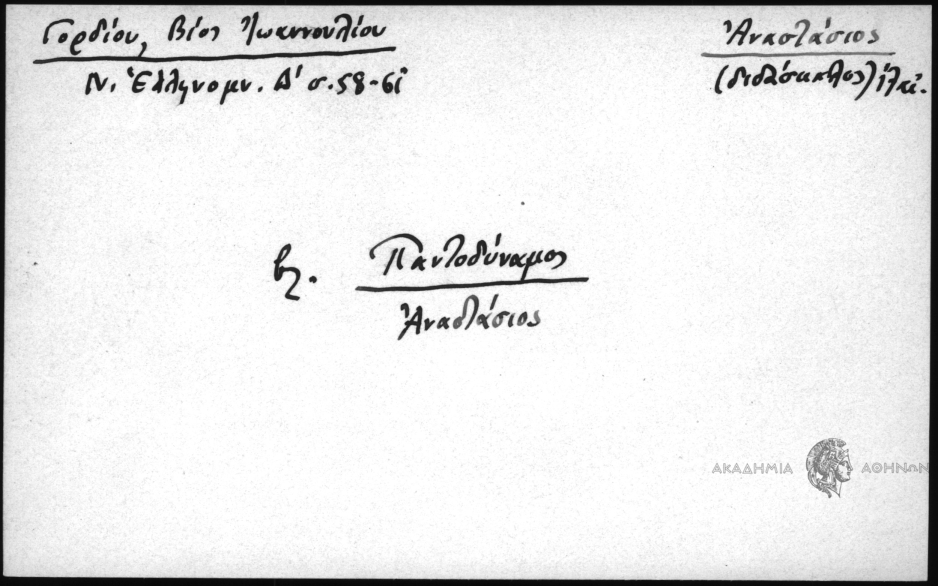 Γορδίου, Βίος Ἰωαννουλίου
Ν. Ἑλληνομν. Δ' σ. 58-61
Ἀναστάσιος
(διδάσκαλος)
βλ. Παντοδύναμος
Ἀναστάσιος
ΑΚΑΔΗΜΙΑ ΑΘΗΝΩΝ